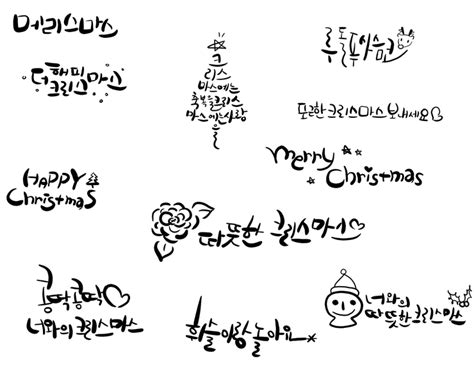 메리스마스
더해피
크리스마스
크
리스
마스에는
축복을크리스
마스에는사랑
을
루돌프사슴코
포근한크리스마스보내세요
Merry
Christmas
HAPPY
Christmas
따뜻한 크리스마스
콩딱콩딱
너와의 크리스마스
휘슬이랑놀아요
너와의
따뜻한크리스마스